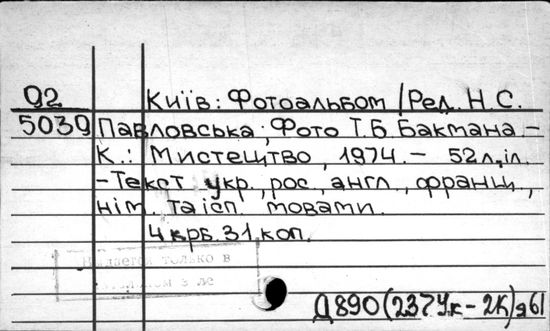 92 Київ: Фотоальбом / Ред. Н.С.
5039 Павловська; Фото Т.Б. Бакмана –
К.: Мистецтво, 1974. – 52 л. іл.
– Текст укр., рос., англ., франц.,
нім. та ісп. мовами.
4 крб. 31 коп.
только в
Д890(237Ук – 2К)я61